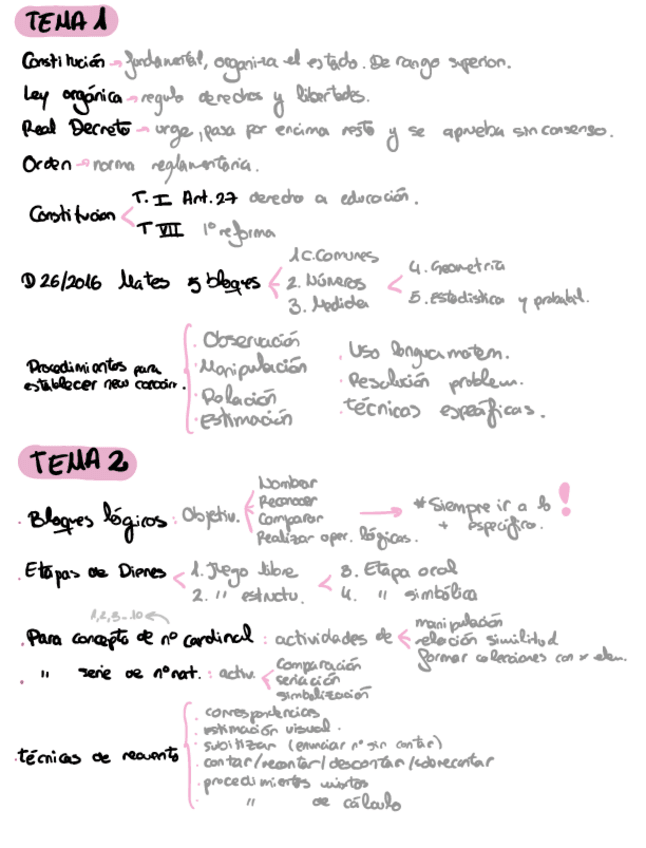 TEMA 1
Constitución → fundamental, organiza el estado. De rango superior.
Ley orgánica → regula derechos y libertades.
Real Decreto → urge, pasa por encima resto y se aprueba sin consenso.
Orden → norma reglamentaria.
Constitucion < T. I Art. 27 derecho a educación.
T VII 1º reforma
D 26/2016 Mates 5 bloques < 1 C. Comunes
2. Números
3. Medida
< 4. Geometria
5. Estadistica y probabil.
Procedimientos para
establecer new conocim.
· Observación
· Manipulación
· Relación
· Estimación
· Uso lengua matem.
· Resolución problem.
· técnicas específicas.
TEMA 2
· Bloques lógicos : Objetiv. < Nombrar
Reconocer
Comparar
Realizar oper. lógicas.
→ * Siempre ir a lo
+ específico. !
· Etapas de Dienes < 1. Juego libre
2. " estructu.
< 3. Etapa oral
4. " simbólica
1,2,3...10 ←
· Para concepto de nº cardinal : actividades de < manipulación
relación similitud
formar colecciones con x elem.
· " serie de nº nat. : activ. < Comparación
seriación
simbolización
· técnicas de recuento
· correspondencias
· estimación visual.
· subitizar (enunciar nº sin contar)
· contar/recontar/descontar/sobrecontar
· procedimientos mixtos
· " de cálculo